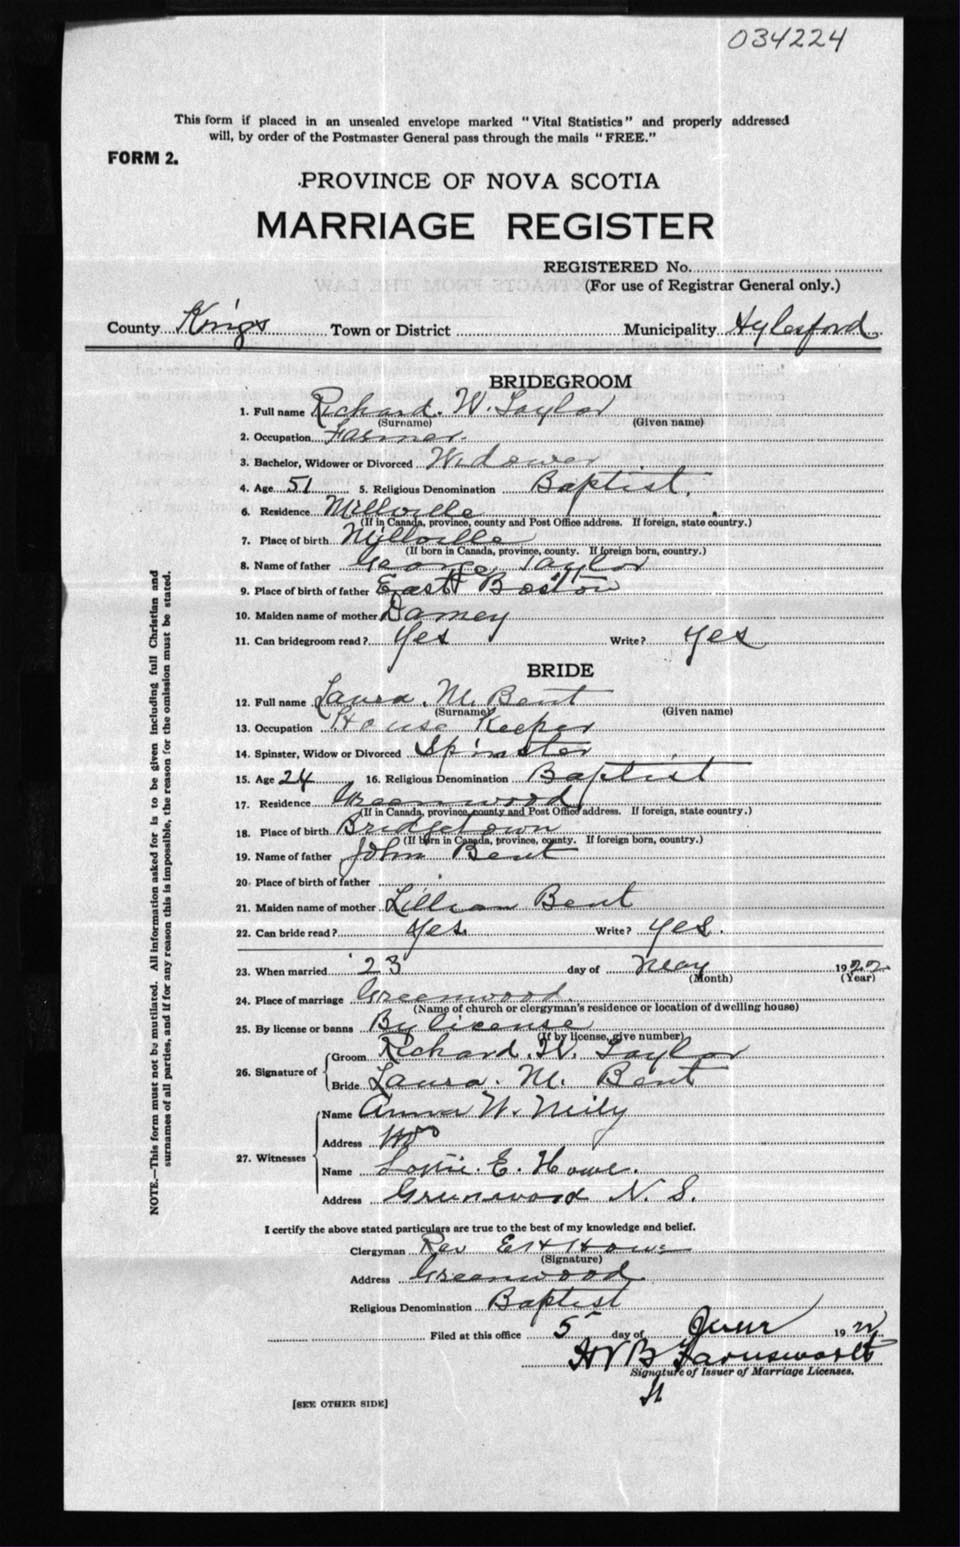 034224
This form if placed in an unsealed envelope marked "Vital Statistics" and properly addressed
will, by order of the Postmaster General pass through the mails "FREE."
FORM 2.
PROVINCE OF NOVA SCOTIA
MARRIAGE REGISTER
REGISTERED No.
(For use of Registrar General only.)
County Kings Town or District Municipality Aylesford
BRIDEGROOM
1. Full name Richard. W. Taylor
(Surname) (Given name)
2. Occupation Farmer.
3. Bachelor, Widower or Divorced Widower
4. Age 51 5. Religious Denomination Baptist.
6. Residence Millville
(If in Canada, province, county and Post Office address. If foreign, state country.)
7. Place of birth Millville
(If born in Canada, province, county. If foreign born, country.)
8. Name of father George Taylor
9. Place of birth of father East Boston
10. Maiden name of mother
11. Can bridegroom read? Yes Write? Yes
BRIDE
12. Full name Laura. M. Bent
(Surname) (Given name)
13. Occupation House Keeper
14. Spinster, Widow or Divorced Spinster
15. Age 24 16. Religious Denomination Baptist
17. Residence Greenwood
(If in Canada, province, county and Post Office address. If foreign, state country.)
18. Place of birth Bridgetown
(If born in Canada, province, county. If foreign born, country.)
19. Name of father John Bent
20. Place of birth of father
21. Maiden name of mother Lillian Bent
22. Can bride read? Yes. Write? Yes.
23. When married 23 day of May 1922
(Month) (Year)
24. Place of marriage Greenwood.
(Name of church or clergyman's residence or location of dwelling house)
25. By license or banns By license
(If by license, give number)
26. Signature of
Groom Richard. W. Taylor
Bride Laura. M. Bent
27. Witnesses
Name Anna W. Neily
Address
Name E. Howe.
Address Greenwood N. S.
I certify the above stated particulars are true to the best of my knowledge and belief.
Clergyman Rev E H Howe
(Signature)
Address Greenwood
Religious Denomination Baptist
Filed at this office 5 day of June 1922
Farnsworth
Signature of Issuer of Marriage Licenses.
[SEE OTHER SIDE]
NOTE.—This form must not be mutilated. All information asked for is to be given including full Christian and
surnames of all parties, and if for any reason this is impossible, the reason for the omission must be stated.